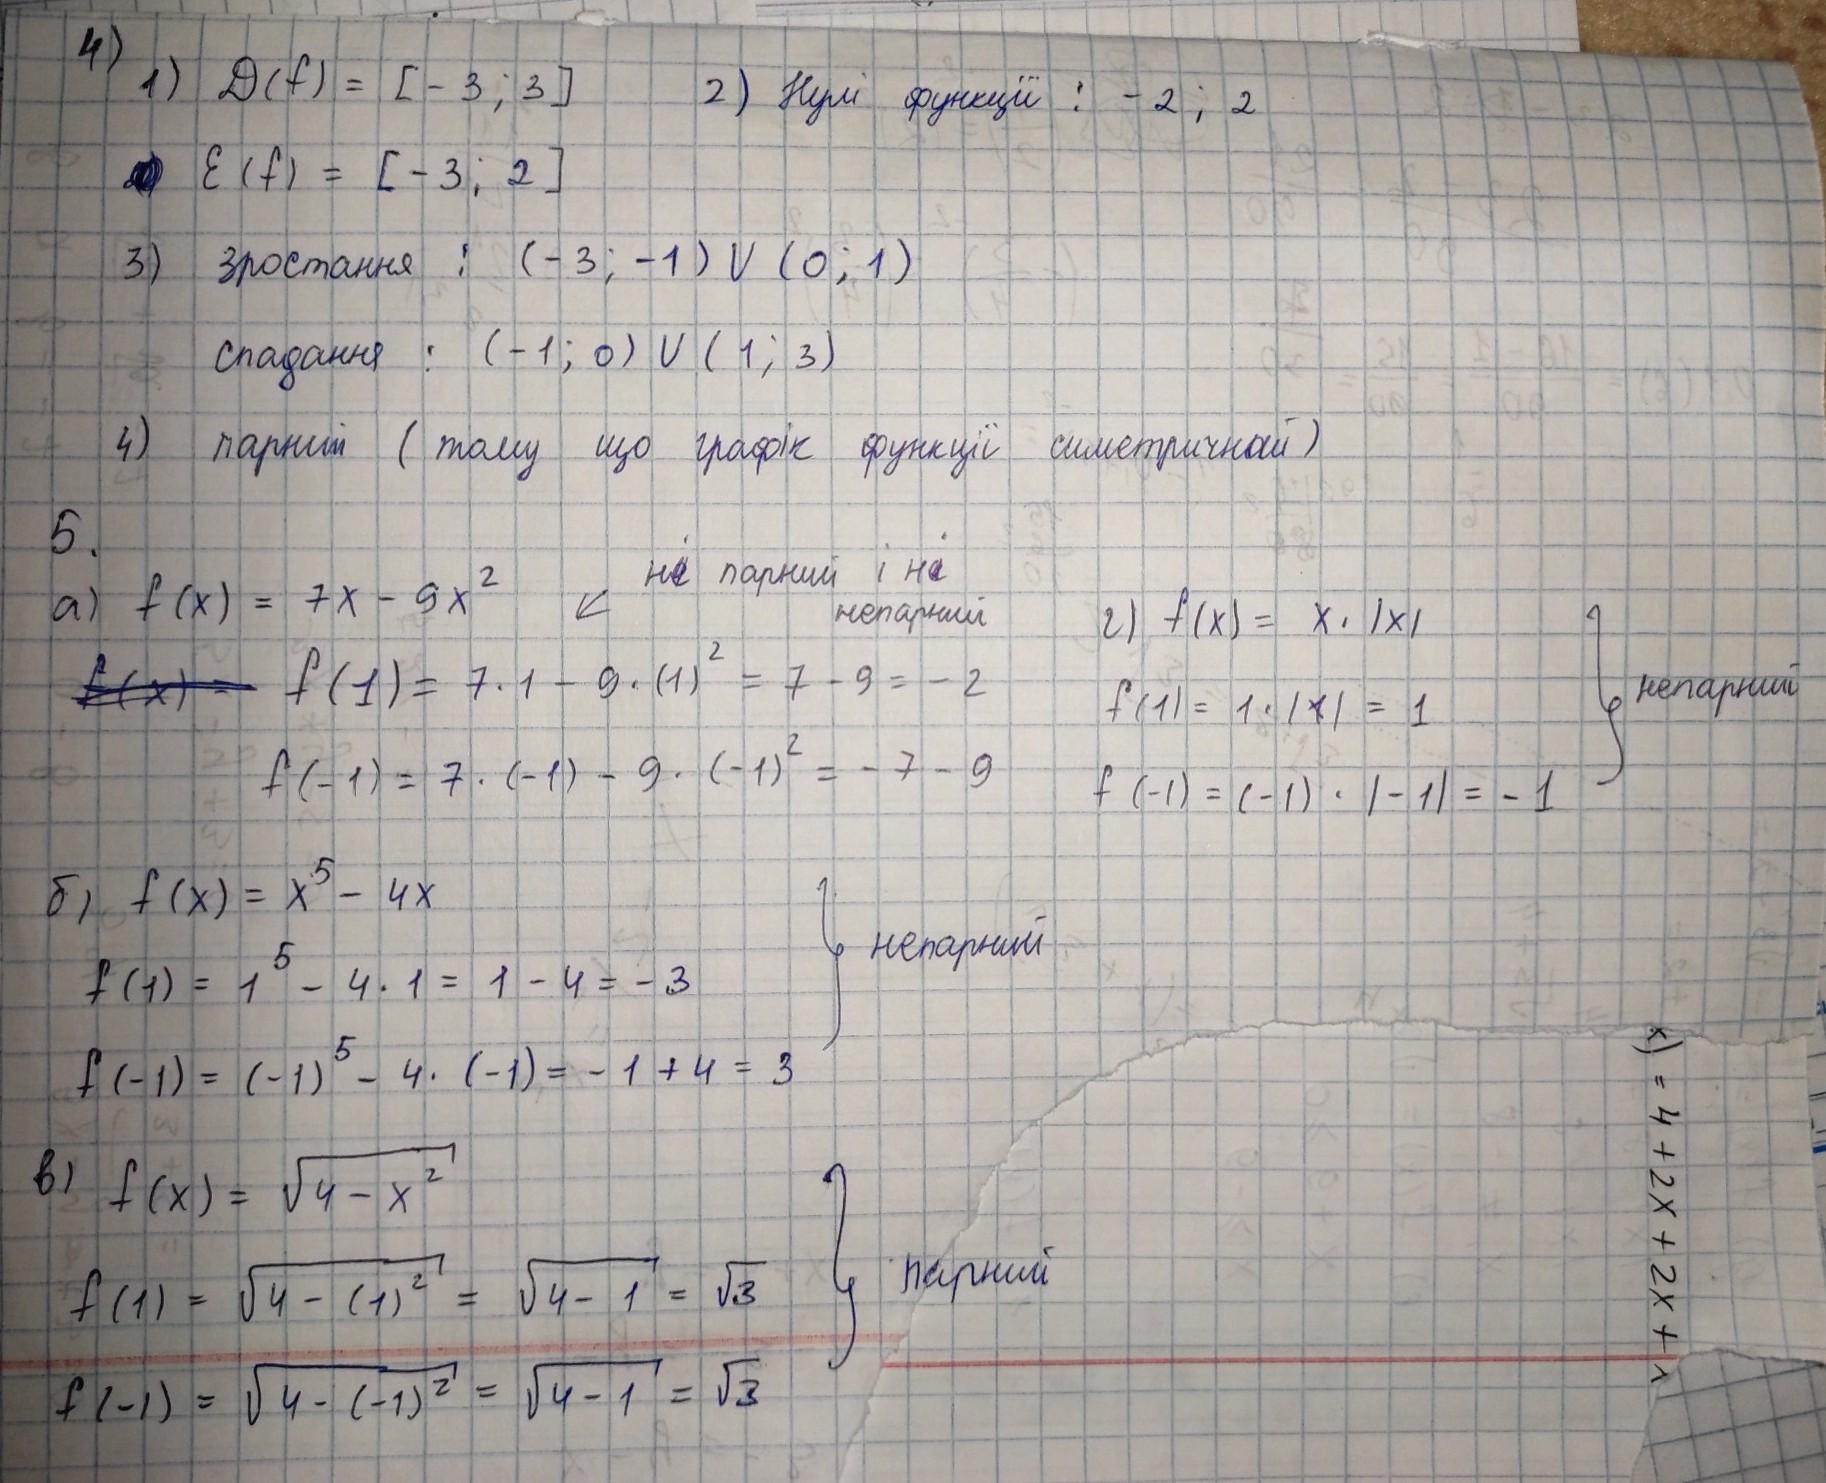 4)
1) D(f) = [-3; 3]
2) Нулі функції : -2; 2
E(f) = [-3; 2]
3) зростання : (-3; -1) U (0; 1)
спадання : (-1; 0) U (1; 3)
4) парний (тому що графік функції симетричний)
5.
а) f(x) = 7x - 9x²
ні парний і ні
непарний
f(x) =
f(1) = 7·1 - 9·(1)² = 7 - 9 = -2
f(-1) = 7·(-1) - 9·(-1)² = -7 - 9
г) f(x) = x·|x|
f(1) = 1·|1| = 1
f(-1) = (-1)·|-1| = -1
непарний
б) f(x) = x⁵ - 4x
f(1) = 1⁵ - 4·1 = 1 - 4 = -3
f(-1) = (-1)⁵ - 4·(-1) = -1 + 4 = 3
непарний
в) f(x) = √(4 - x²)
f(1) = √(4 - (1)²) = √(4 - 1) = √3
f(-1) = √(4 - (-1)²) = √(4 - 1) = √3
парний
x) = 4 + 2x + 2x +